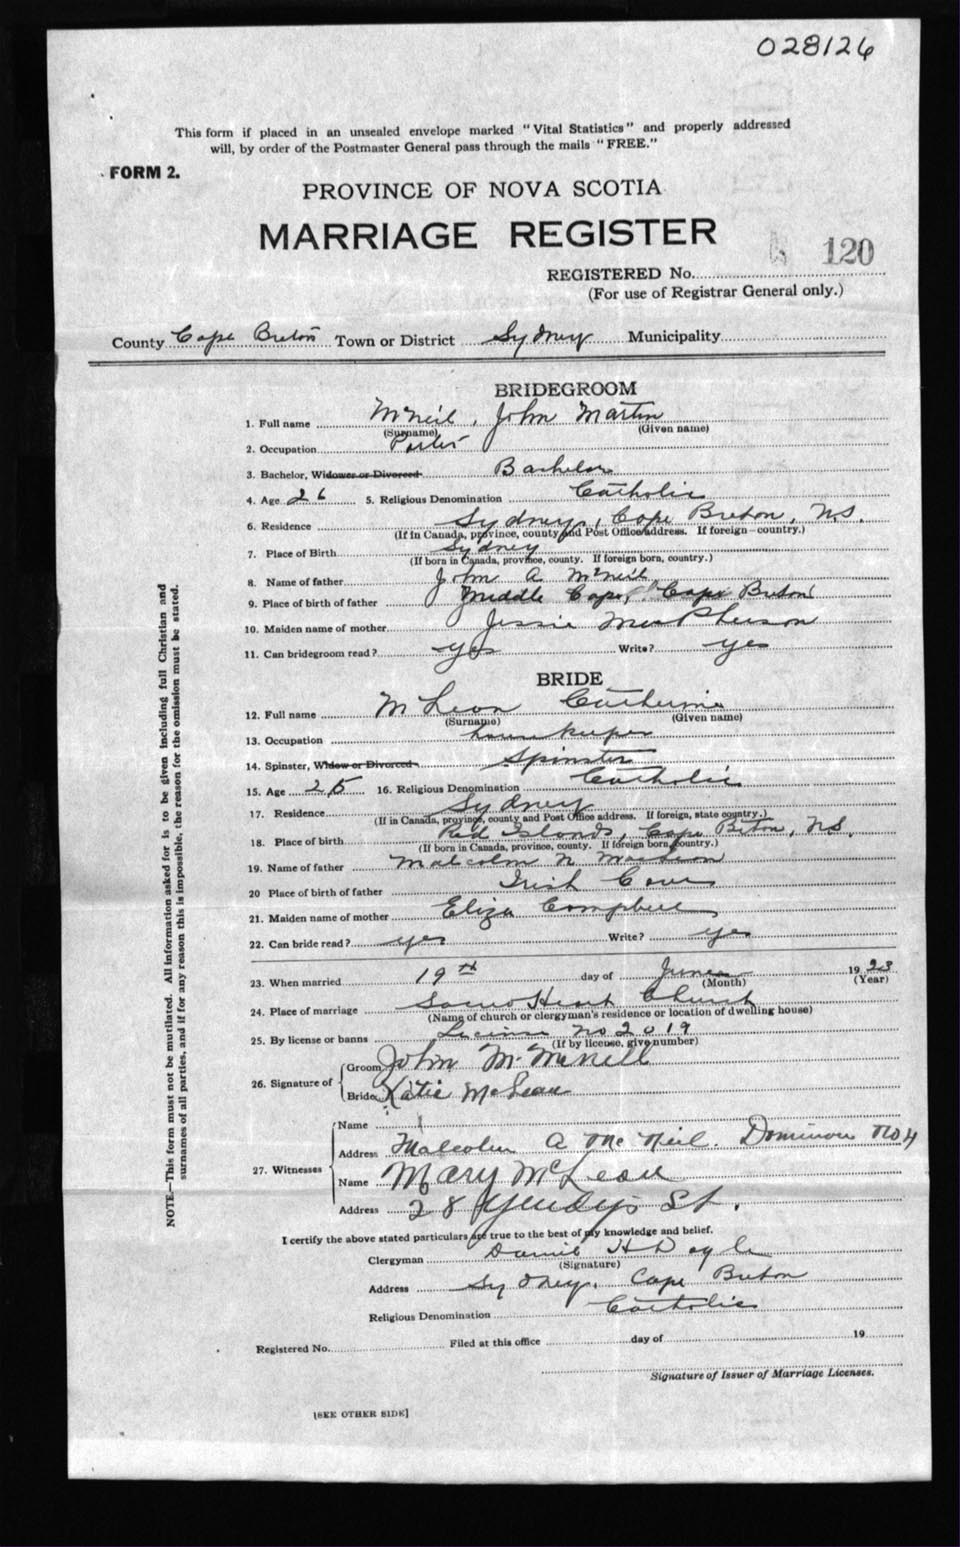 028126
This form if placed in an unsealed envelope marked "Vital Statistics" and properly addressed
will, by order of the Postmaster General pass through the mails "FREE."
FORM 2.
PROVINCE OF NOVA SCOTIA
MARRIAGE REGISTER
120
REGISTERED No.
(For use of Registrar General only.)
County Cape Breton Town or District Sydney Municipality
BRIDEGROOM
1. Full name McNeil, John Martin
(Surname) (Given name)
2. Occupation Porter
3. Bachelor, Widower or Divorced Bachelor
4. Age 26 5. Religious Denomination Catholic
6. Residence Sydney, Cape Breton, N.S.
(If in Canada, province, county and Post Office address. If foreign—country.)
7. Place of Birth Sydney
(If born in Canada, province, county. If foreign born, country.)
8. Name of father John A McNeil
9. Place of birth of father Middle Cape, Cape Breton
10. Maiden name of mother Jessie MacPherson
11. Can bridegroom read? yes Write? yes
BRIDE
12. Full name McLean Catherine
(Surname) (Given name)
13. Occupation housekeeper
14. Spinster, Widow or Divorced Spinster
15. Age 25 16. Religious Denomination Catholic
17. Residence Sydney
(If in Canada, province, county and Post Office address. If foreign, state country.)
18. Place of birth Red Islands, Cape Breton, NS.
(If born in Canada, province, county. If foreign born, country.)
19. Name of father Malcolm N MacLean
20 Place of birth of father Irish Cove
21. Maiden name of mother Eliza Campbell
22. Can bride read? yes Write? yes
23. When married 19th day of June 1923
(Month) (Year)
24. Place of marriage Sacred Heart Church
(Name of church or clergyman's residence or location of dwelling house)
25. By license or banns License No 2019
(If by license, give number)
26. Signature of
Groom John M. McNeill
Bride Katie McLean
27. Witnesses
Name
Address Malcolm A McNeil. Dominion No 4
Name Mary McLean
Address 28 St.
I certify the above stated particulars are true to the best of my knowledge and belief.
Clergyman Daniel H Doyle
(Signature)
Address Sydney, Cape Breton
Religious Denomination Catholic
Registered No. Filed at this office day of 19
Signature of Issuer of Marriage Licenses.
[SEE OTHER SIDE]
NOTE—This form must not be mutilated. All information asked for is to be given including full Christian and
surnames of all parties, and if for any reason this is impossible, the reason for the omission must be stated.